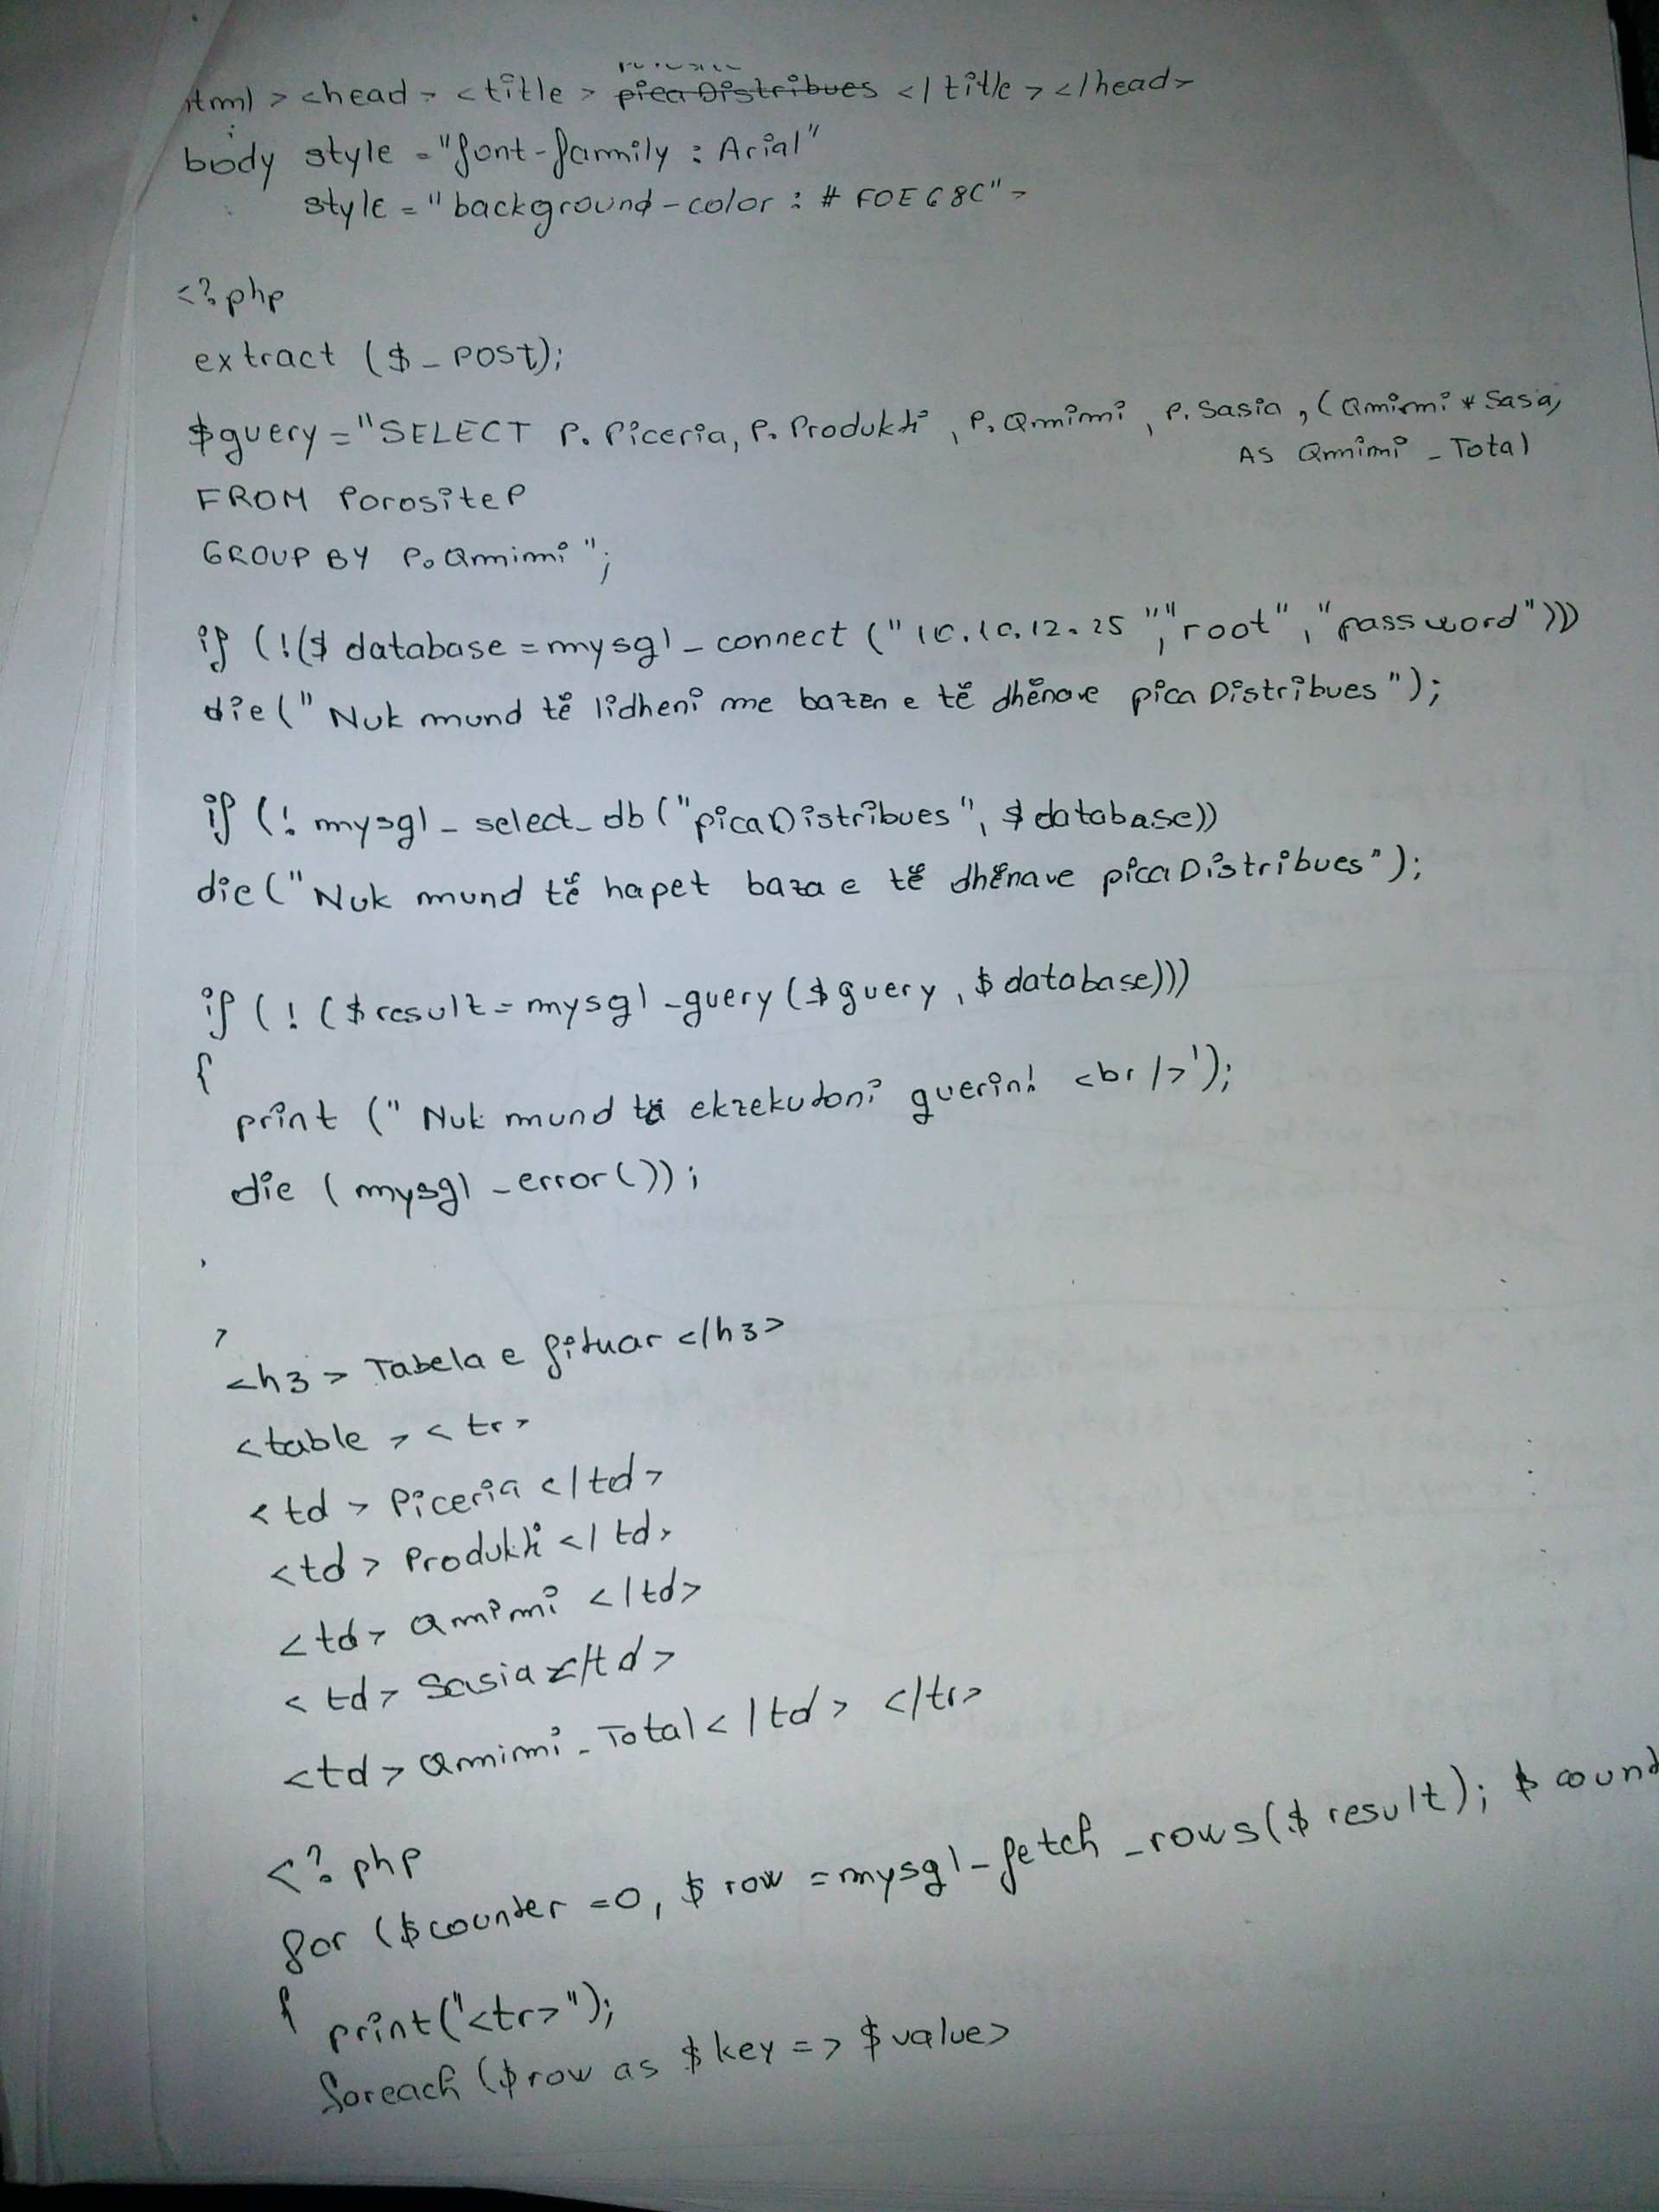 html > <head> <title> picaDistribues </title> </head>
body style = "font-family : Arial"
style = "background-color : # F0E68C">
<?php
extract ($_POST);
$query = "SELECT P.Piceria, P.Produkti, P.Qmimi, P.Sasia, (Qmimi * Sasia)
AS Qmimi_Total
FROM Porosite P
GROUP BY P.Qmimi";
if (!($ database = mysql_connect ("10.10.12.25","root","password")))
die("Nuk mund të lidheni me bazën e të dhënave picaDistribues");
if (! mysql_select_db ("picaDistribues", $ database))
die ("Nuk mund të hapet baza e të dhënave picaDistribues");
if (! ($ result = mysql_query ($ query, $ database)))
{
print ("Nuk mund të ekzekutoni querin! <br />');
die (mysql_error());
<h3> Tabela e fituar </h3>
<table> <tr>
<td> Piceria </td>
<td> Produkti </td>
<td> Qmimi </td>
<td> Sasia </td>
<td> Qmimi_Total </td> </tr>
<?php
for ($counter =0, $ row = mysql_fetch_rows ($ result); $ count
{ print("<tr>");
foreach ($row as $key => $value>